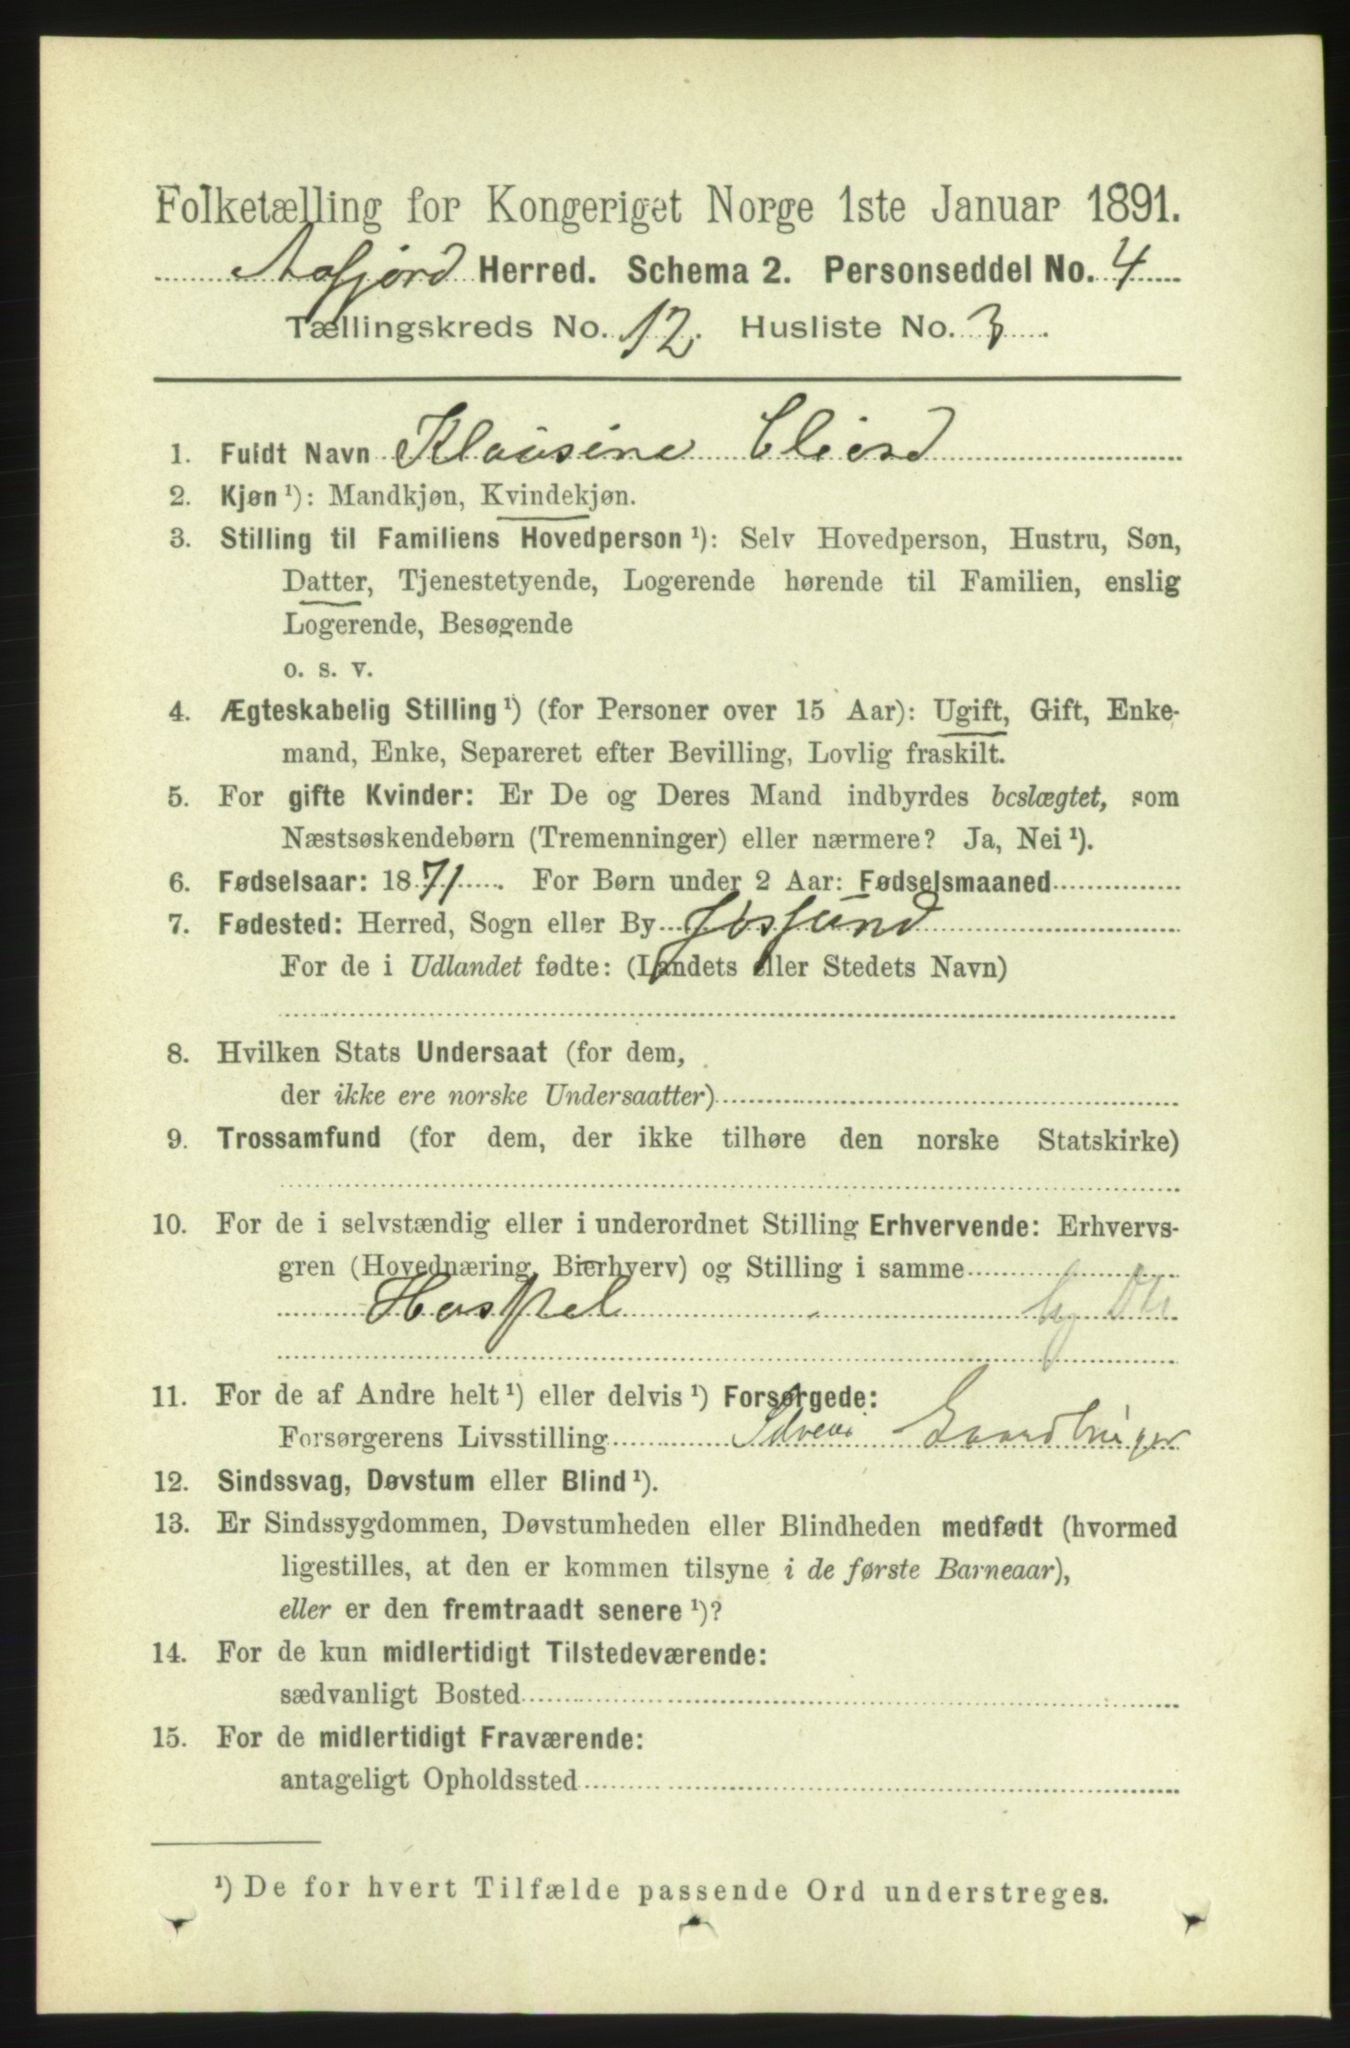 Folketælling for Kongeriget Norge 1ste Januar 1891.
Aafjord Herred. Schema 2. Personseddel No. 4
Tællingskreds No. 12. Husliste No. 3.
1. Fuldt Navn Klausine
2. Kjøn¹): Mandkjøn, Kvindekjøn.
3. Stilling til Familiens Hovedperson¹): Selv Hovedperson, Hustru, Søn,
Datter, Tjenestetyende, Logerende hørende til Familien, enslig
Logerende, Besøgende
o. s. v.
4. Ægteskabelig Stilling¹) (for Personer over 15 Aar): Ugift, Gift, Enke-
mand, Enke, Separeret efter Bevilling, Lovlig fraskilt.
5. For gifte Kvinder: Er De og Deres Mand indbyrdes beslægtet, som
Næstsøskendebørn (Tremenninger) eller nærmere? Ja, Nei¹).
6. Fødselsaar: 1871. For Børn under 2 Aar: Fødselsmaaned
7. Fødested: Herred, Sogn eller By Jøssund
For de i Udlandet fødte: (Landets eller Stedets Navn)
8. Hvilken Stats Undersaat (for dem,
der ikke ere norske Undersaatter)
9. Trossamfund (for dem, der ikke tilhøre den norske Statskirke)
10. For de i selvstændig eller i underordnet Stilling Erhvervende: Erhvervs-
gren (Hovednæring, Bierhverv) og Stilling i samme
11. For de af Andre helt¹) eller delvis¹) Forsørgede:
Forsørgerens Livsstilling Gaardbruger
12. Sindssvag, Døvstum eller Blind¹).
13. Er Sindssygdommen, Døvstumheden eller Blindheden medfødt (hvormed
ligestilles, at den er kommen tilsyne i de første Barneaar),
eller er den fremtraadt senere¹)?
14. For de kun midlertidigt Tilstedeværende:
sædvanligt Bosted
15. For de midlertidigt Fraværende:
antageligt Opholdssted
¹) De for hvert Tilfælde passende Ord understreges.